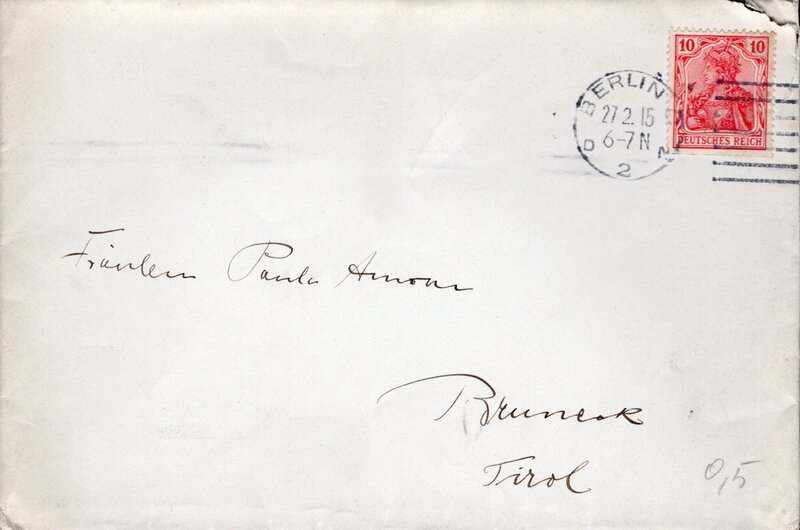 10 10
DEUTSCHES REICH
BERLIN
27.2.15
6-7 N
D N
2
Fräulein Paula Amonn
Bruneck
Tirol
0,5